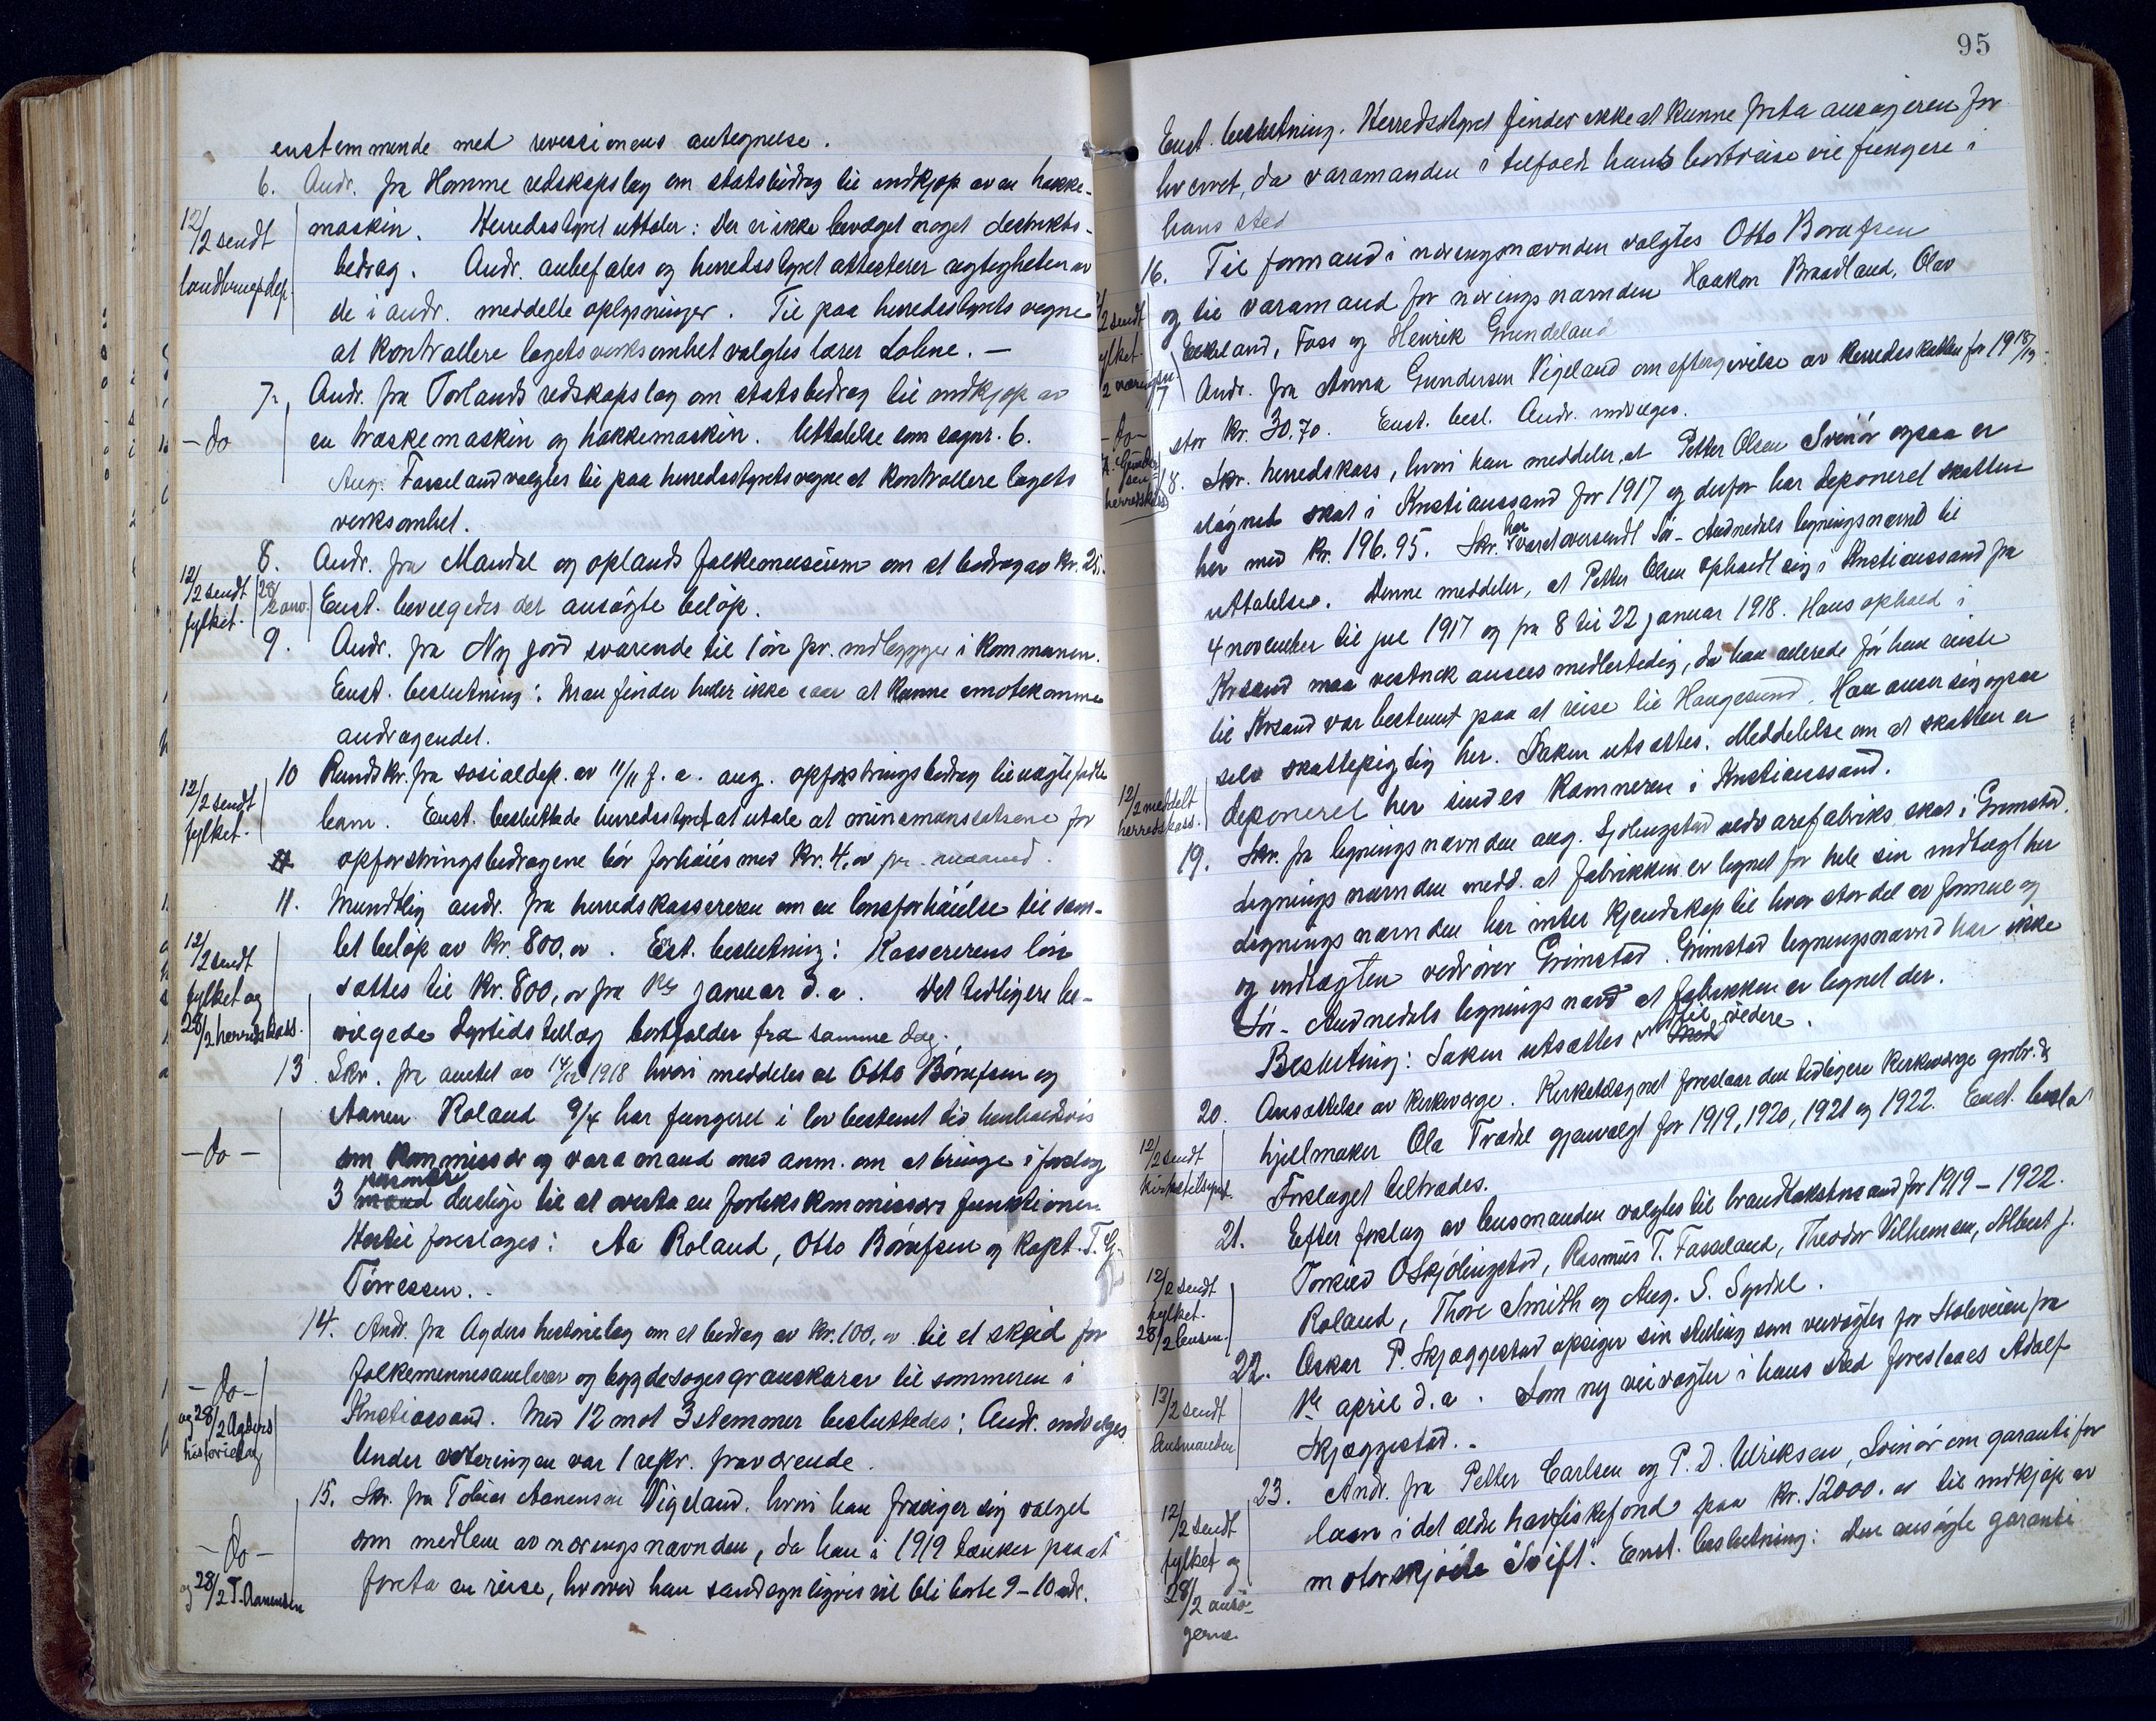 enstemmende med revisionens antegnelse.
6. Andr. fra Homme redskapslag om statsbidrag til indkjøp av en hakke-
12/2 sendt landbruksdep.
maskin. Herredsstyret uttaler: Der er ikke bevilget noget distrikts-
bidrag. Andr. anbefales og herredsstyret attesterer rigtigheten av
de i andr. meddelte oplysninger. Til paa herredsstyrets vegne
at kontrollere lagets verksomhet valgtes lærer Lohne. –
7. Andr. fra Torlands redskapslag om statsbidrag til indkjøp av
– do
en træskemaskin og hakkemaskin. Uttalelse som sagnr. 6.
Aug. Fasseland valgtes til paa herredsstyrets vegne at kontrollere lagets
verksomhet.
8. Andr. fra Mandal og oplands folkemuseum om et bidrag av kr. 25.
12/2 sendt fylket. 28/2 anv.
Enst. bevilgedes det ansøgte beløp.
9. Andr. fra Ny jord svarende til 1 øre pr. indbygger i kommunen.
Enst. beslutning: Man finder heller ikke iaar at kunne imøtekomme
andragendet.
10 Rundskr. fra sosialdep. av 11/11 f. a. ang. opfostringsbidrag til uægtefødte
12/2 sendt fylket.
barn. Enst. besluttede herredsstyret at uttale at minimanssatsene for
opfostringsbidragene bør forhøies med kr. 4,oo pr. maaned.
11. Mundtlig andr. fra herredskassereren om en lønsforhøielse til sam-
12/2 sendt fylket og 28/2 herredskass.
let beløp av kr. 800,oo. Enst. beslutning: Kassererens løn
sættes til kr. 800,oo fra 1ste januar d. a. Det tidligere be-
vilgede dyrtidstillæg bortfalder fra samme dag.
13. Skr. fra amtet av 14/12 1918 hvori meddeles at Otto Borufsen og
Aanen Roland 9/4 har fungeret i lovbestemt tid henholdsvis
– do –
som kommissær og varamand med anm. om at bringe i forslag
3 personer duelige til at overta en forlikskommissærs funktioner.
Hertil foreslages: Aa Roland, Otto Borufsen og kapt. T. G.
Tørressen.
14. Andr. fra Agders historielag om et bidrag av kr. 100.oo til et skeid for
– do – og 28/2 Agders historielag
folkeminnesamlarar og bygdesogegranskarar til sommeren i
Kristiansand. Med 12 mot 3 stemmer besluttedes: Andr. indvilges.
Under voteringen var 1 repr. fraværende.
15. Skr. fra Tobias Aanensen Vigeland. hvori han frasiger sig valget
– do – og 28/2 T. Aanensen
som medlem av næringsnævnden, da han i 1919 tænker paa at
foreta en reise, hvorved han sandsynligvis vil bli borte 9–10 mdr.
95
Enst. beslutning. Herredsstyret findes ikke at kunne frita ansøgeren for
hvervet, da varamanden i tilfælde hans bortreise vil fungere i
hans sted
16. Til formand i næringsnævnden valgtes Otto Borufsen
og til varamand for næringsnævnden Haakon Braadland, Olav
Eikeland, Foss og Henrik Grundeland
17 Andr. fra Anna Gundersen Vigeland om eftergivelse av herredsskatten for 1918/19
stor kr. 30.70. Enst. besl. Andr. indvilges.
18. Skr. herredskass, hvori han meddeler, at Petter Olsen Svinør ogsaa er
ilignet skat i Kristianssand for 1917 og derfor har deponeret skatten
her med kr. 196.95. Skr. har været oversendt Sør-Audnedals ligningsnævnd til
uttalelse. Denne meddeler, at Petter Olsen opholdt sig i Kristianssand fra
4 november til jul 1917 og fra 8 til 22 januar 1918. Hans ophold i
Krsand maa vestnok ansees midlertidig, da han allerede før han reiste
til Krsand var bestemt paa at reise til Haugesund. Han anser sig ogsaa
selv skattepligtig her. Saken utsættes. Meddelelse om at skatten er
12/2 meddelt herredskass.
deponeret her sendes kæmneren i Kristianssand.
19. Skr. fra ligningsnævnden ang. Skjölingstad uldvarefabriks skat i Grimstad.
Ligningsnævnden medd. at fabrikken er lignet for hele sin indtægt her
Ligningsnævnden har intet kjendskap til hvor stor del av formue og
og indtægten vedrører Grimstad. Grimstad ligningsnævnd har ikke
Sør-Audnedals ligningsnævnd at fabrikken er lignet der.
Beslutning: Saken utsættes indtil videre.
20. Ansættelse av kirkeverge. Kirketilsynet foreslaar den tidligere kirkeverge grdbr. &
12/2 sendt kirketilsynet.
hjulmaker Ola Trædal gjenvalgt for 1919, 1920, 1921 og 1922. Enst. besl. at
Forslaget tiltrædes.
21. Efter forslag av lensmanden valgtes til brandtakstmænd for 1919–1922.
12/2 sendt fylket. 28/2 lensm.
Torkild O Skjölingstad, Rasmus T. Fasseland, Theodor Vilhemsen, Albert J.
Roland, Thore Smith og Aug. S. Sydal.
22. Oskar P. Skjæggestad opsiger sin stilling som veivogter for Stoleveien fra
13/2 sendt lensmanden
1ste april d. a. Som ny veivogter i hans sted foreslaaes Adolf
Skjæggestad. –
23. Andr. fra Petter Carlsen og P. D. Ulriksen, Svinør om garanti for
12/2 sendt fylket og 28/2 ansøgerne.
laan i det ældre havfiskefond paa kr. 12000.oo til indkjøp av
motorskjöite "Swift". Enst. beslutning: Den ansögte garanti